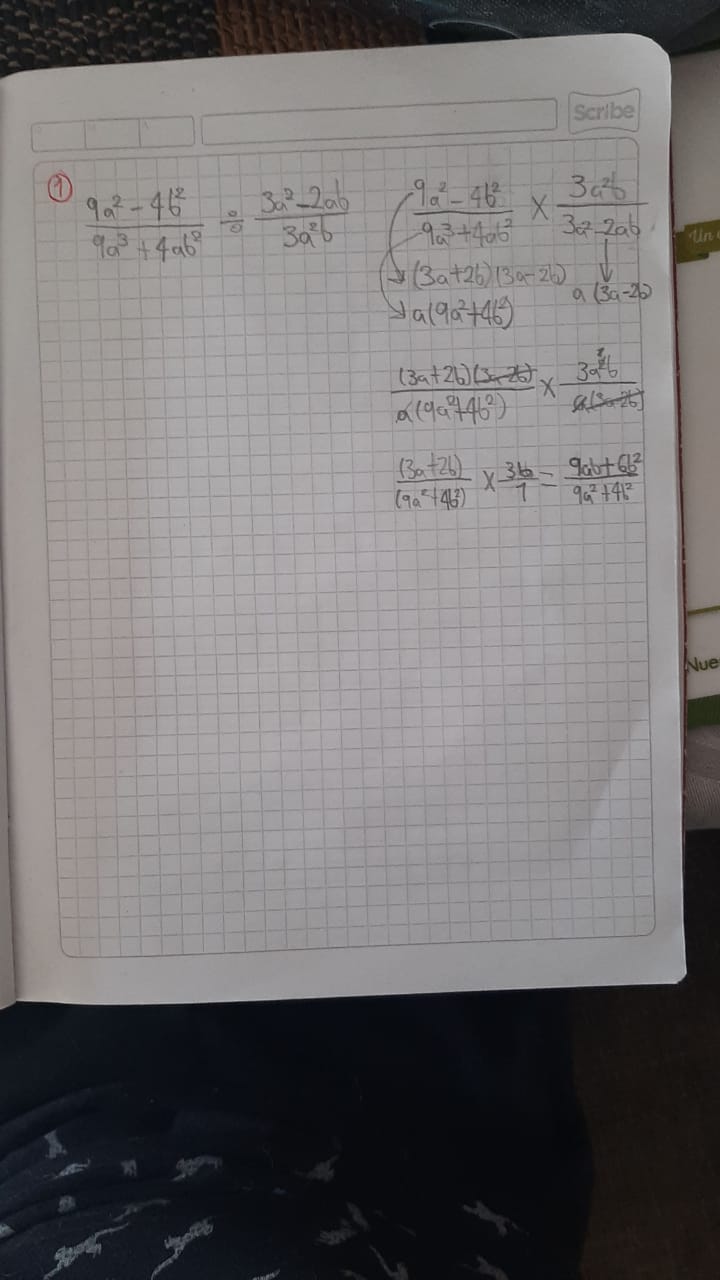 Scribe
1
9a² - 4b² / 9a³ + 4ab² ÷ 3a² - 2ab / 3a²b
9a² - 4b² / 9a³ + 4ab² × 3a²b / 3a² - 2ab
(3a+2b)(3a-2b)
a(3a-2b)
a(9a²+4b²)
(3a+2b)(3a-2b) / a(9a²+4b²) × 3a²b / a(3a-2b)
(3a+2b) / (9a²+4b²) × 3b / 1 = 9ab+6b² / 9a²+4b²
Un
Nue